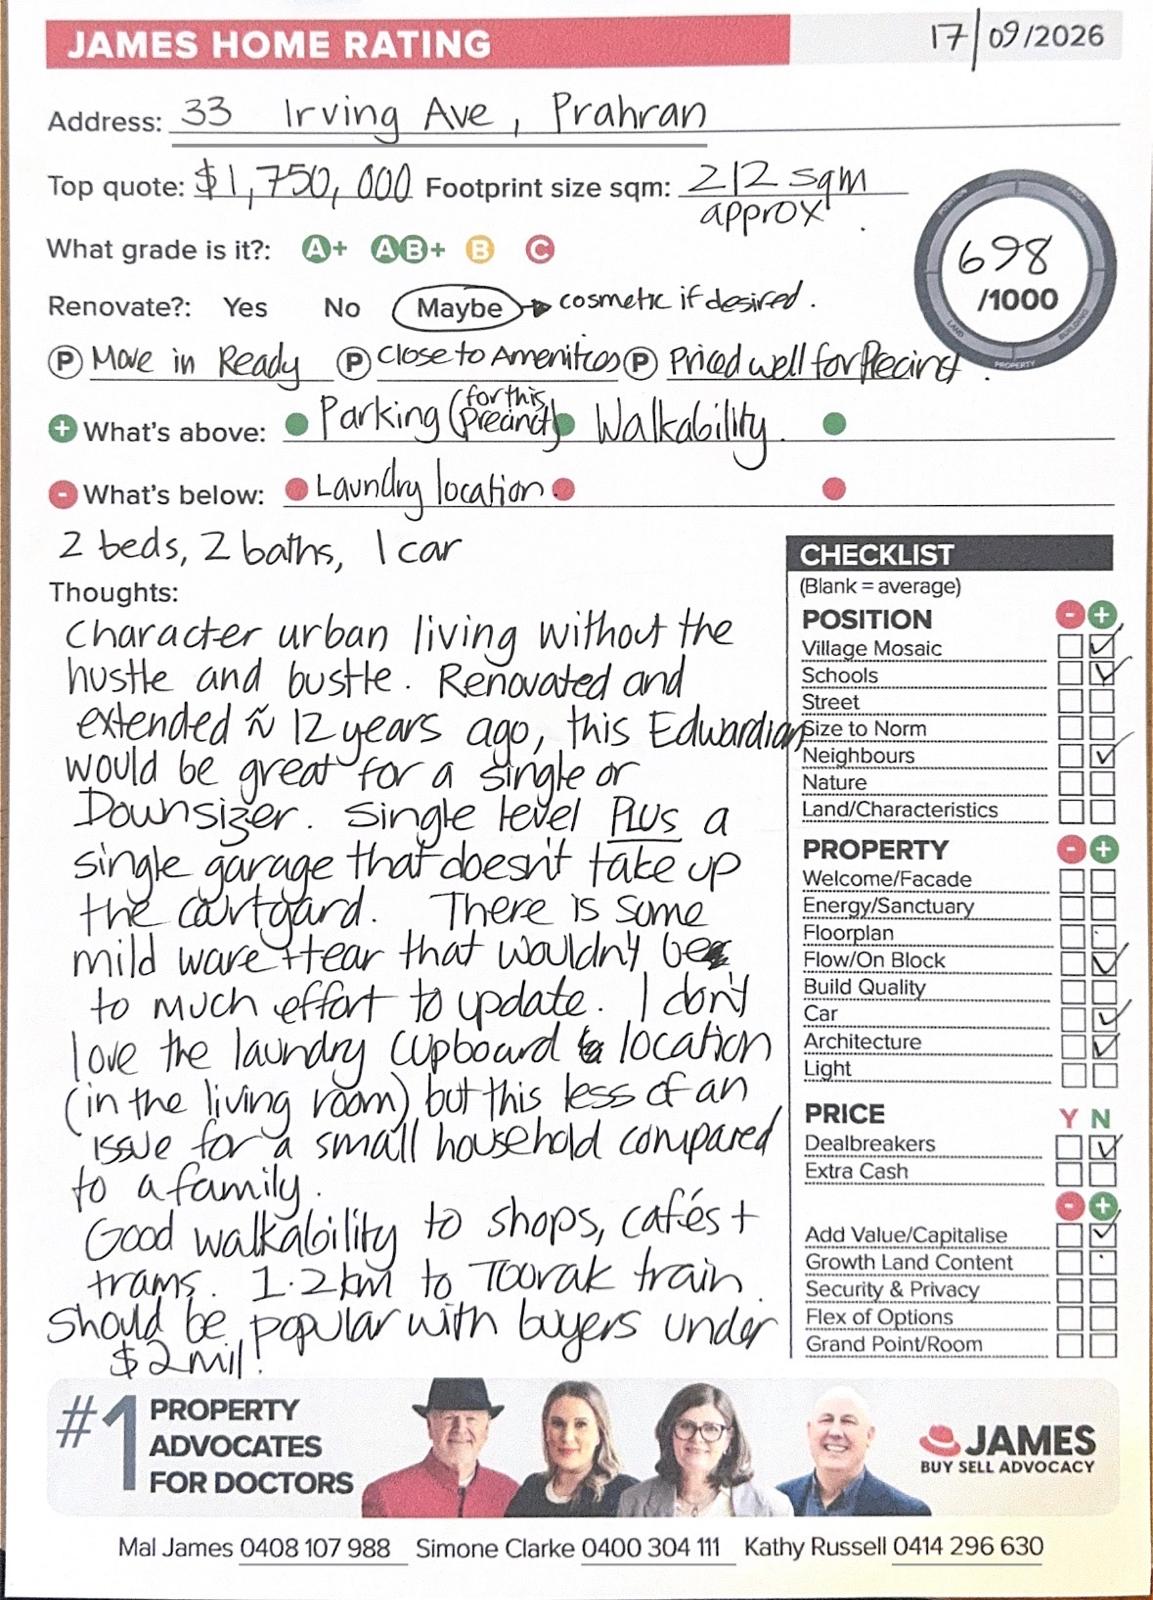 JAMES HOME RATING
17/09/2026
Address: 33 Irving Ave, Prahran
Top quote: $1,750,000 Footprint size sqm: 212 sqm
approx.
What grade is it?: A+ AB+ B C
698
/1000
POSITION PRICE BUILDING PROPERTY LAND
Renovate?: Yes No Maybe → cosmetic if desired.
P Move in Ready P Close to Amenities P Priced well for Precinct.
+ What's above: Parking (for this Precinct) Walkability.
- What's below: Laundry location.
2 beds, 2 baths, 1 car
Thoughts:
Character urban living without the
hustle and bustle. Renovated and
extended ≈ 12 years ago, this Edwardian
would be great for a single or
Downsizer. Single level PLUS a
single garage that doesn't take up
the courtyard. There is some
mild ware + tear that wouldn't be
to much effort to update. I don't
love the laundry cupboard location
(in the living room) but this less of an
issue for a small household compared
to a family.
Good walkability to shops, cafés +
trams. 1.2km to Toorak train.
Should be popular with buyers under
$2mil!
CHECKLIST
(Blank = average)
POSITION - +
Village Mosaic ✓
Schools ✓
Street
Size to Norm
Neighbours ✓
Nature
Land/Characteristics
PROPERTY - +
Welcome/Facade
Energy/Sanctuary
Floorplan
Flow/On Block ✓
Build Quality
Car ✓
Architecture ✓
Light
PRICE Y N
Dealbreakers ✓
Extra Cash
- +
Add Value/Capitalise ✓
Growth Land Content
Security & Privacy
Flex of Options
Grand Point/Room
#1 PROPERTY
ADVOCATES
FOR DOCTORS
JAMES
BUY SELL ADVOCACY
Mal James 0408 107 988 Simone Clarke 0400 304 111 Kathy Russell 0414 296 630